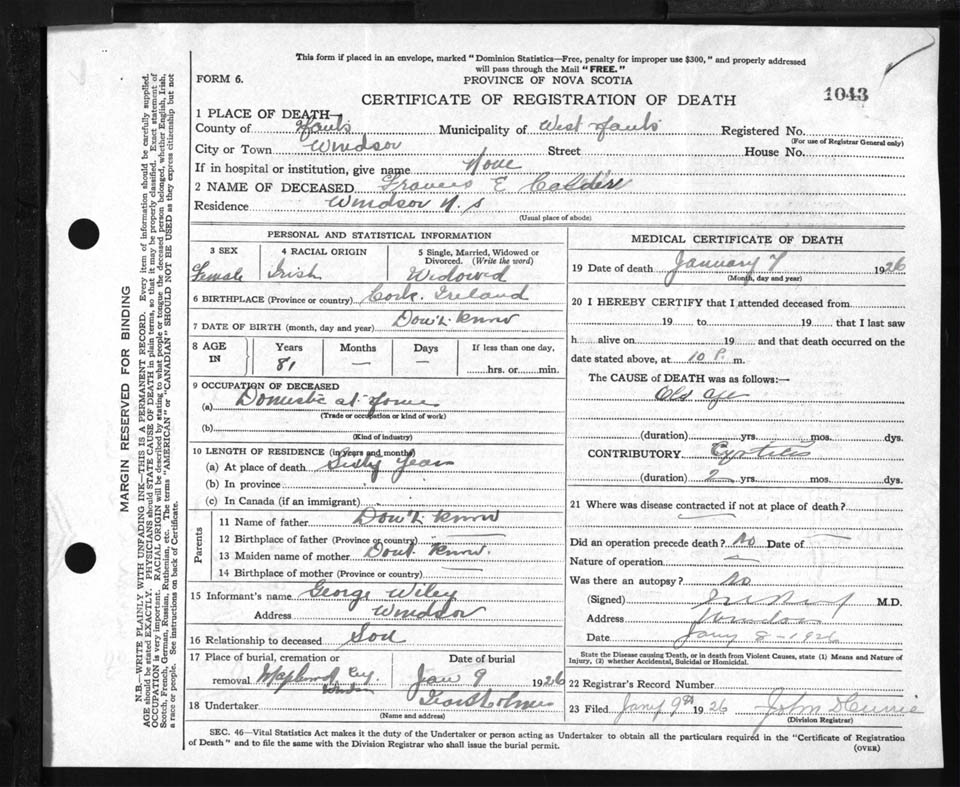 This form if placed in an envelope, marked "Dominion Statistics—Free, penalty for improper use $300," and properly addressed
will pass through the Mail "FREE."
FORM 6.
PROVINCE OF NOVA SCOTIA
CERTIFICATE OF REGISTRATION OF DEATH
1043
1 PLACE OF DEATH—
County of Hants Municipality of West Hants Registered No.
(For use of Registrar General only)
City or Town Windsor Street House No.
If in hospital or institution, give name None
2 NAME OF DECEASED Frances E
Residence Windsor N.S
(Usual place of abode)
PERSONAL AND STATISTICAL INFORMATION
3 SEX 4 RACIAL ORIGIN 5 Single, Married, Widowed or
Divorced. (Write the word)
Female Irish Widowed
6 BIRTHPLACE (Province or country) Cork. Ireland
7 DATE OF BIRTH (month, day and year) Don't Know
8 AGE IN Years Months Days If less than one day,
81 — — hrs. or min.
9 OCCUPATION OF DECEASED
(a) Domestic at Home
(Trade or occupation or kind of work)
(b)
(Kind of industry)
10 LENGTH OF RESIDENCE (in years and months)
(a) At place of death Sixty Years
(b) In province
(c) In Canada (if an immigrant)
Parents
11 Name of father Don't Know
12 Birthplace of father (Province or country) —
13 Maiden name of mother Dont Know.
14 Birthplace of mother (Province or country) —
15 Informant's name George Wiley
Address Windsor
16 Relationship to deceased Son
17 Place of burial, cremation or Date of burial
removal Maplewood Cey. Windsor Jan 9 1926
18 Undertaker
(Name and address)
MEDICAL CERTIFICATE OF DEATH
19 Date of death January 7 1926
(Month, day and year)
20 I HEREBY CERTIFY that I attended deceased from
19 to 19 that I last saw
h alive on 19 and that death occurred on the
date stated above, at 10 P. m.
The CAUSE of DEATH was as follows:—
Old age
(duration) yrs. mos. dys.
CONTRIBUTORY
(duration) 2 yrs. mos. dys.
21 Where was disease contracted if not at place of death?
Did an operation precede death? No Date of —
Nature of operation —
Was there an autopsy? No
(Signed) M.D.
Address Windsor
Date Jany 8 - 1926
State the Disease causing Death, or in death from Violent Causes, state (1) Means and Nature of
Injury, (2) whether Accidental, Suicidal or Homicidal.
22 Registrar's Record Number
23 Filed Jany 9th 1926 John D Currie
(Division Registrar)
SEC. 46—Vital Statistics Act makes it the duty of the Undertaker or person acting as Undertaker to obtain all the particulars required in the "Certificate of Registration
of Death" and to file the same with the Division Registrar who shall issue the burial permit.
(OVER)
MARGIN RESERVED FOR BINDING
N.B.—WRITE PLAINLY WITH UNFADING INK—THIS IS A PERMANENT RECORD. Every item of information should be carefully supplied.
AGE should be stated EXACTLY. PHYSICIANS should STATE CAUSE OF DEATH in plain terms, so that it may be properly classified. Exact statement of
OCCUPATION is very important. RACIAL ORIGIN will be described by stating to what people or tongue the deceased person belonged, whether English, Irish,
Scotch, French, German, Russian, Ruthenian, etc. The terms "AMERICAN" or "CANADIAN" SHOULD NOT BE USED as they express citizenship but not
a race or people. See instructions on back of Certificate.